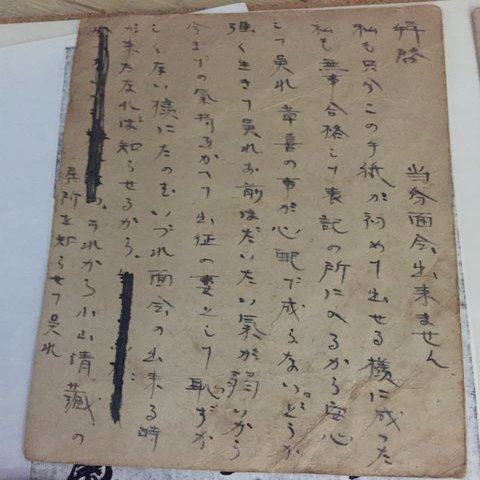 拝啓
当分面会出来ません
私も只今この手紙が初めて出せる様に成った
私も無事合格して表記の所にゐるから安心
して呉れ 章喜の事が心配で成らない。どうか
強く生きて呉れお前はだいたい氣が弱いから
今までの氣持をかへて出征の妻として恥ずか
しくない様にたのむ いづれ面会の出来る時
が来たなれば知らせるから。
それから小山情藏の
居所を知らせて呉れ